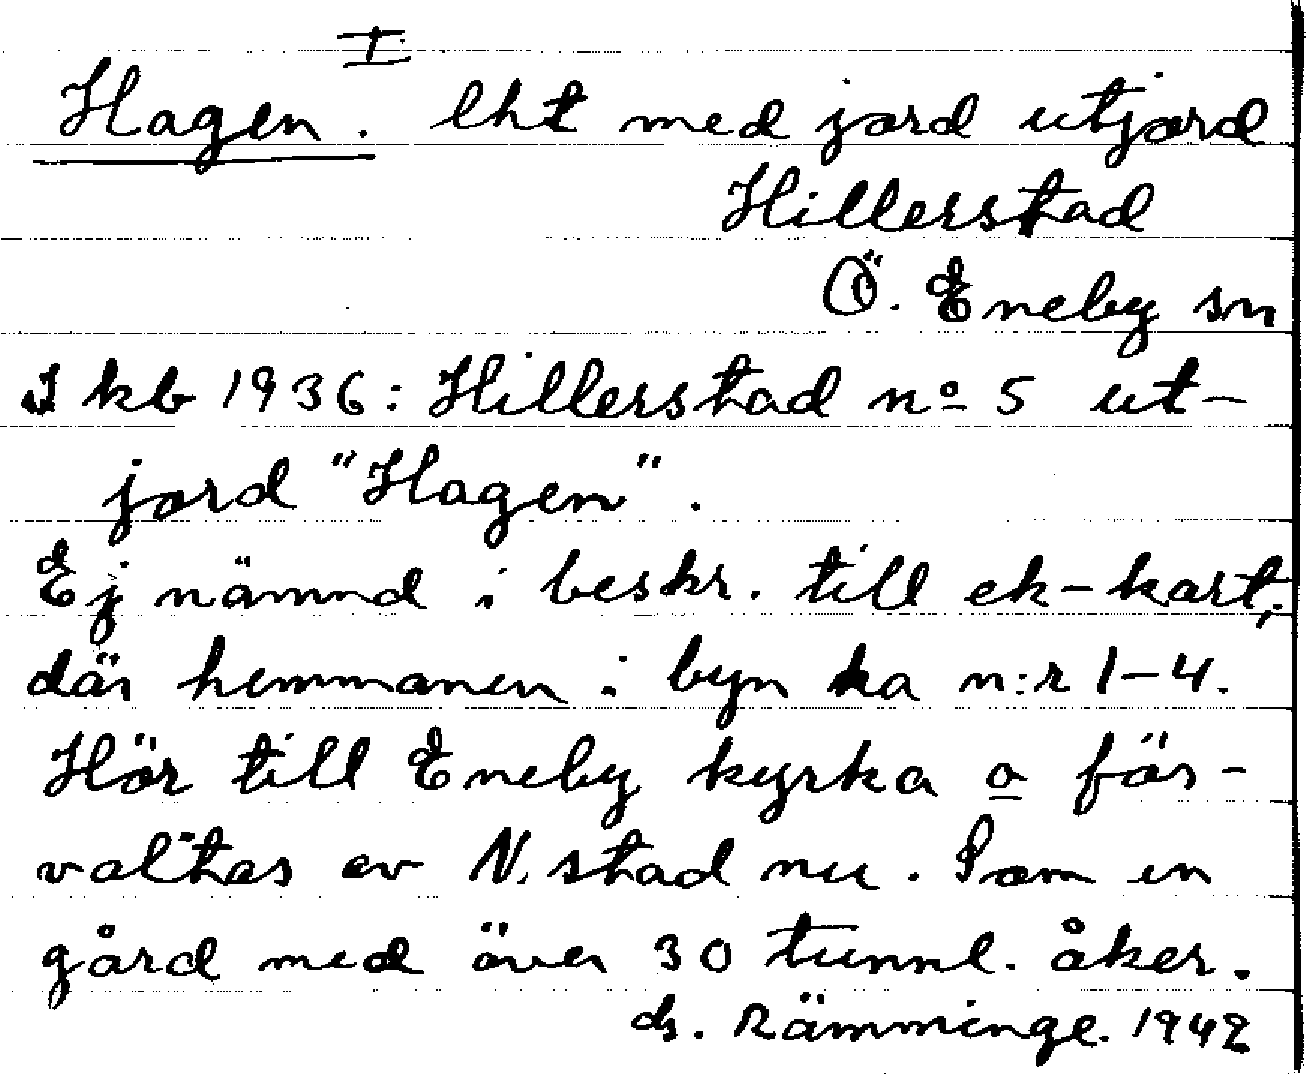 I
Hagen. lht med jord utjord
Hillerstad
Ö. Eneby sn
I kb 1936: Hillerstad no 5 ut-
jord "Hagen".
Ej nämnd i beskr. till ek-kart,
där hemmanen i byn ha n:r 1-4.
Hör till Eneby kyrka o för-
valtas av N. stad nu. Som en
gård med över 30 tunnl. åker.
ds. Rämminge. 1942